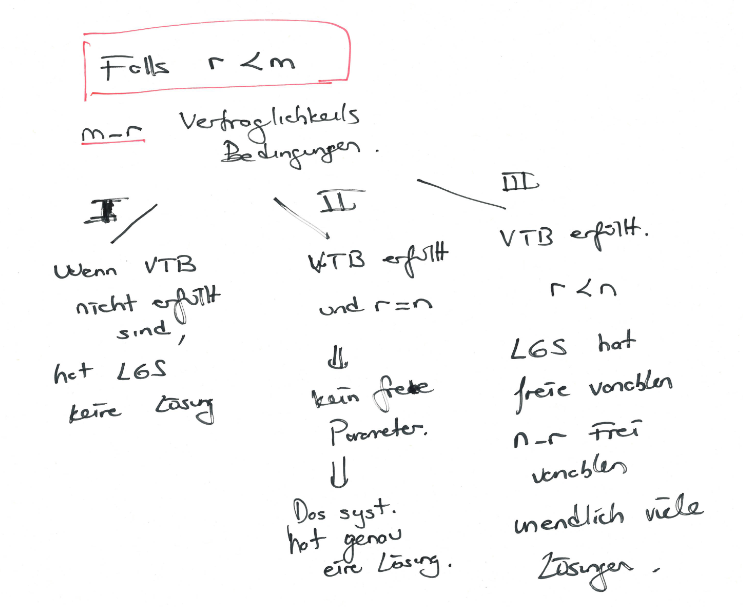 Falls r < m
m-r Verträglichkeits
Bedingungen.
I
Wenn VTB
nicht erfüllt
sind,
hat LGS
keine Lösung
II
VTB erfüllt
und r = n
⇓
kein freie
Parameter.
⇓
Das syst.
hat genau
eine Lösung.
III
VTB erfüllt.
r < n
LGS hat
freie variablen
n-r Frei
variablen
unendlich viele
Lösungen.